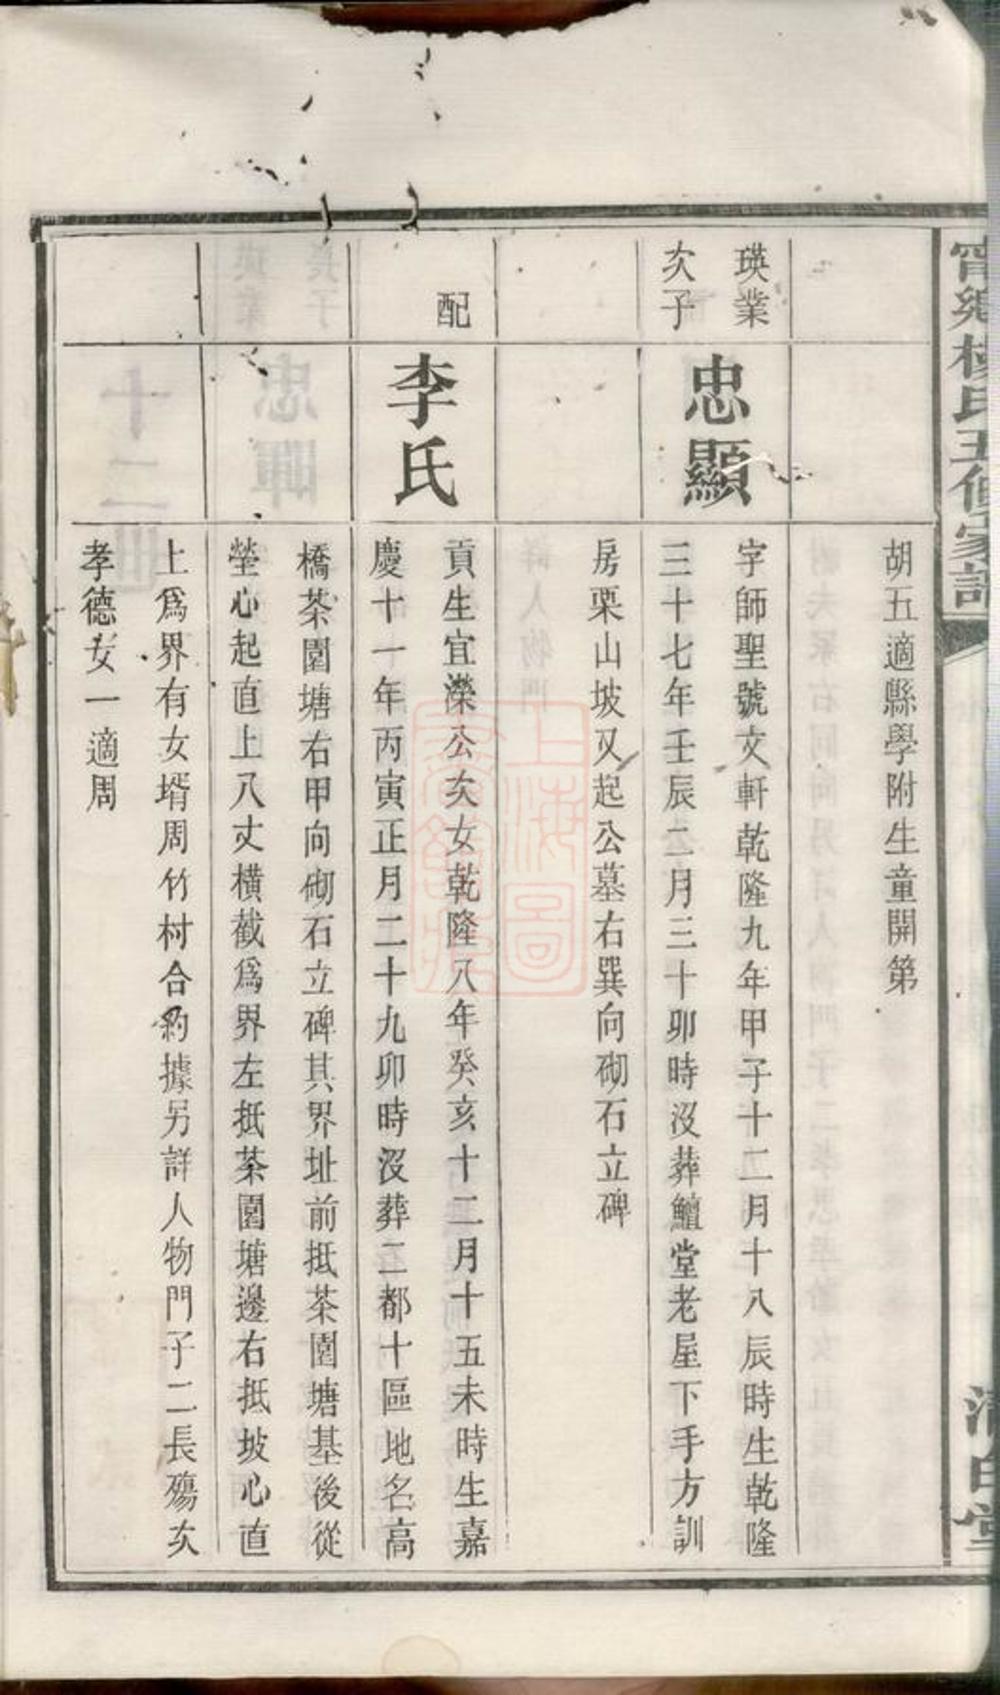 甯鄉楊氏五修家譜
清白堂
胡五適縣學附生童開第
瑛業
次子
忠顯
字師聖號文軒乾隆九年甲子十二月十八辰時生乾隆
三十七年壬辰二月三十卯時沒葬鱣堂老屋下手方訓
房栗山坡又起公墓右巽向砌石立碑
配
李氏
貢生宜濚公次女乾隆八年癸亥十二月十五未時生嘉
慶十一年丙寅正月二十九卯時沒葬二都十區地名高
橋茶園塘右甲向砌石立碑其界址前抵茶園塘基後從
塋心起直上八丈橫截爲界左抵茶園塘邊右抵坡心直
上爲界有女壻周竹村合約據另詳人物門子二長殤次
孝德女一適周
上海圖
書館藏